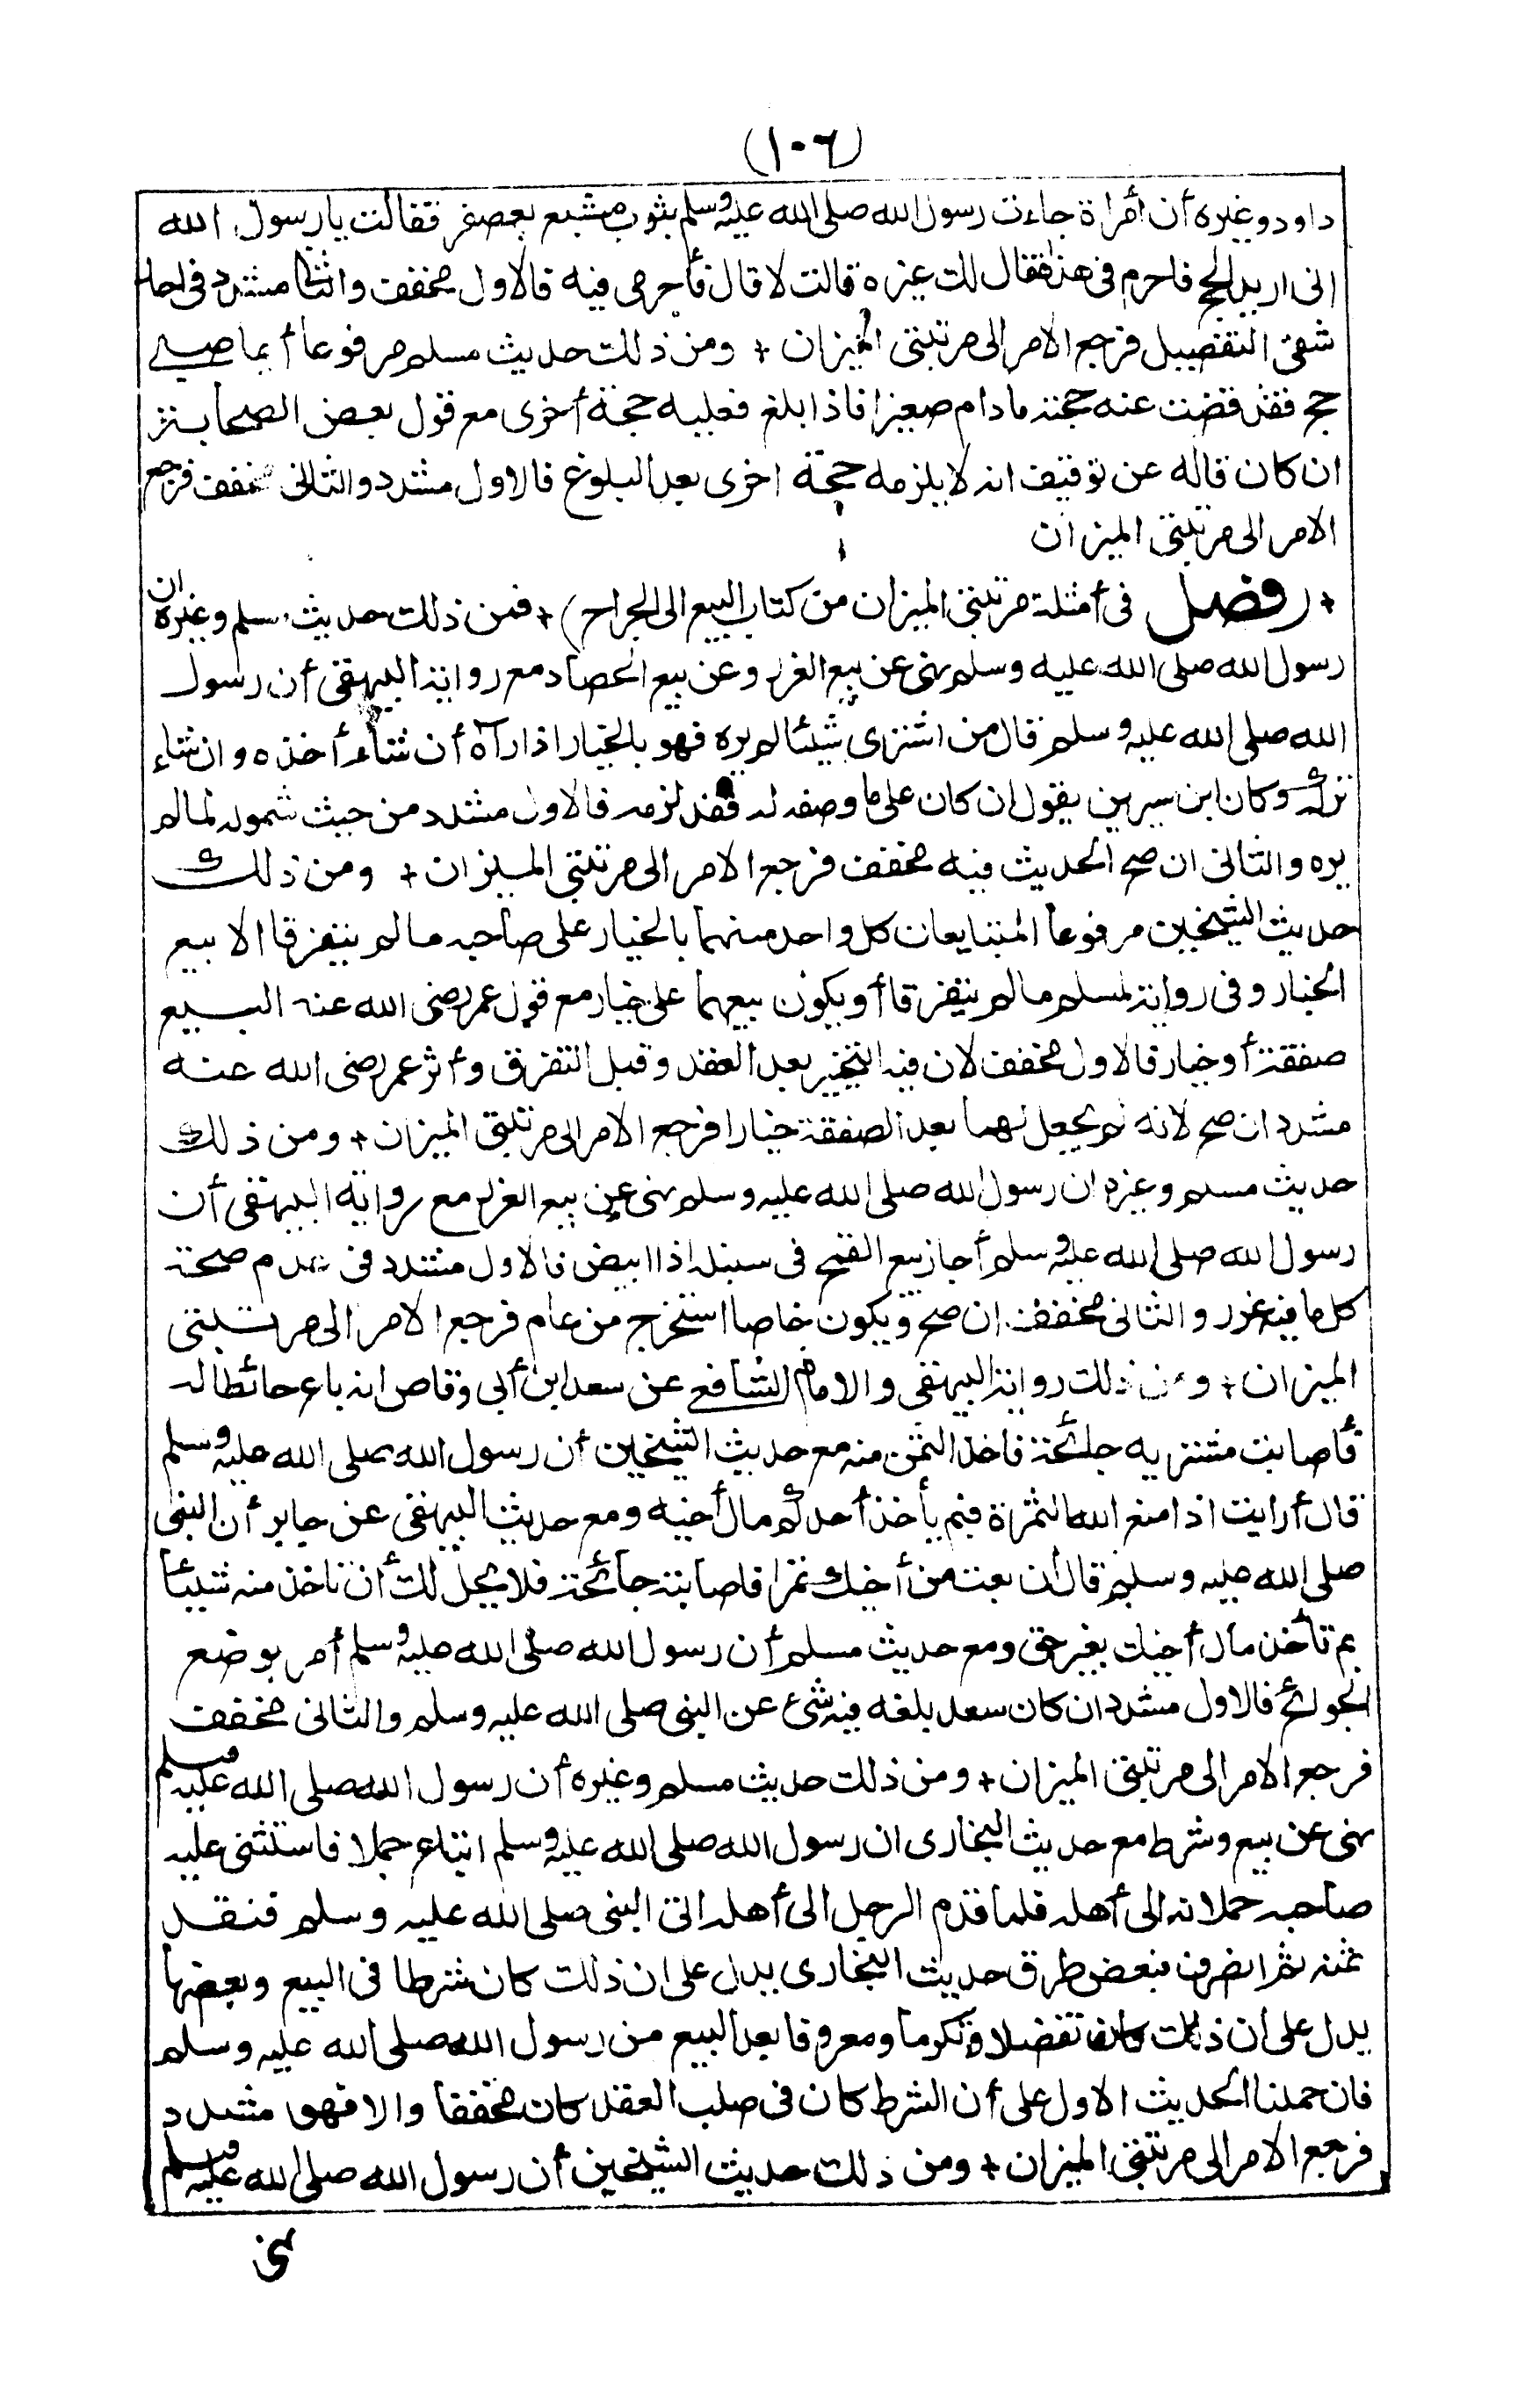 (١٠٦)
داود وغيره أن أمراة جاءت رسول الله صلى الله عليه وسلم بثوب مشبع بعصفر فقالت يا رسول الله
انى اريد الحج فاحرم فى هذا فقال لك غيره قالت لا قال فأحرمى فيه فالاول مخفف والثانى مشدد فى احد
شقى التفصيل فرجع الامر الى مرتبتى الميزان + ومن ذلك حديث مسلم مرفوعا أيما صبى
حج فقد قضت عنه حجته مادام صغيرا فاذا بلغ فعليه حجة أخرى مع قول بعض الصحابة
ان كان قاله عن توقيف انه لا يلزمه حجة اخرى بعد البلوغ فالاول مشدد والثانى مخفف فرجع
الامر الى مرتبتى الميزان
+ (فصل فى أمثلة مرتبتى الميزان من كتاب البيع الى الجراح) + فمن ذلك حديث مسلم وغيره ان
رسول الله صلى الله عليه وسلم نهى عن بيع الغرر وعن بيع الحصاد مع رواية البيهقى أن رسول
الله صلى الله عليه وسلم قال من اشترى شيئا لم يره فهو بالخيار اذا رآه أن شاء أخذه وان شاء
تركه وكان ابن سيرين يقول ان كان على ما وصفه له فقد لزمه فالاول مشدد من حيث شموله لمالم
يره والثانى ان صح الحديث فيه مخفف فرجع الامر الى مرتبتى الميزان + ومن ذلك
حديث الشيخين مرفوعا المتبايعان كل واحد منهما بالخيار على صاحبه مالم يتفرقا الا بيع
الخيار وفى رواية لمسلم مالم يتفرقا أو يكون بيعهما على خيار مع قول عمر رضى الله عنه البيع
صفقة أو خيار فالاول مخفف لان فيه التخيير بعد العقد وقبل التفرق وأثر عمر رضى الله عنه
مشدد ان صح لانه لم يجعل لهما بعد الصفقة خيارا فرجع الامر الى مرتبتى الميزان + ومن ذلك
حديث مسلم وغيره ان رسول الله صلى الله عليه وسلم نهى عن بيع الغرر مع رواية البيهقى أن
رسول الله صلى الله عليه وسلم أجاز بيع القمح فى سنبله اذا ابيض فالاول مشدد فى عدم صحة
كل ما فيه غرر والثانى مخفف ان صح ويكون خاصا استخرج من عام فرجع الامر الى مرتبتى
الميزان + ومن ذلك رواية البيهقى والامام الشافعى عن سعد ابن أبى وقاص انه باع حائطا له
فأصابت مشتريه جائحة فاخذ الثمن منه مع حديث الشيخين أن رسول الله صلى الله عليه وسلم
قال أرايت اذا منع الله الثمرة فبم يأخذ أحدكم مال أخيه ومع حديث البيهقى عن جابر أن النبى
صلى الله عليه وسلم قال ان بعت من أخيك تمرا فاصابته جائحة فلا يحل لك أن تاخذ منه شيئا
بم تأخذ مال أخيك بغير حق ومع حديث مسلم أن رسول الله صلى الله عليه وسلم أمر بوضع
الجوائح فالاول مشدد ان كان سعد بلغه فيه شئ عن النبى صلى الله عليه وسلم والثانى مخفف
فرجع الامر الى مرتبتى الميزان + ومن ذلك حديث مسلم وغيره أن رسول الله صلى الله عليه وسلم
نهى عن بيع وشرط مع حديث البخارى ان رسول الله صلى الله عليه وسلم ابتاع جملا فاستثنى عليه
صاحبه حملانه الى أهله فلما قدم الرجل الى أهله اتى النبى صلى الله عليه وسلم فنقد
ثمنه ثم انصرف فبعض طرق حديث البخارى يدل على ان ذلك كان شرطا فى البيع وبعضها
يدل على أن ذلك كان تفضلا وتكرما ومعروفا بعد البيع من رسول الله صلى الله عليه وسلم
فان حملنا الحديث الاول على أن الشرط كان فى صلب العقد كان مخففا والا فهو مشدد
فرجع الامر الى مرتبتى الميزان + ومن ذلك حديث الشيخين أن رسول الله صلى الله عليه وسلم
نهى